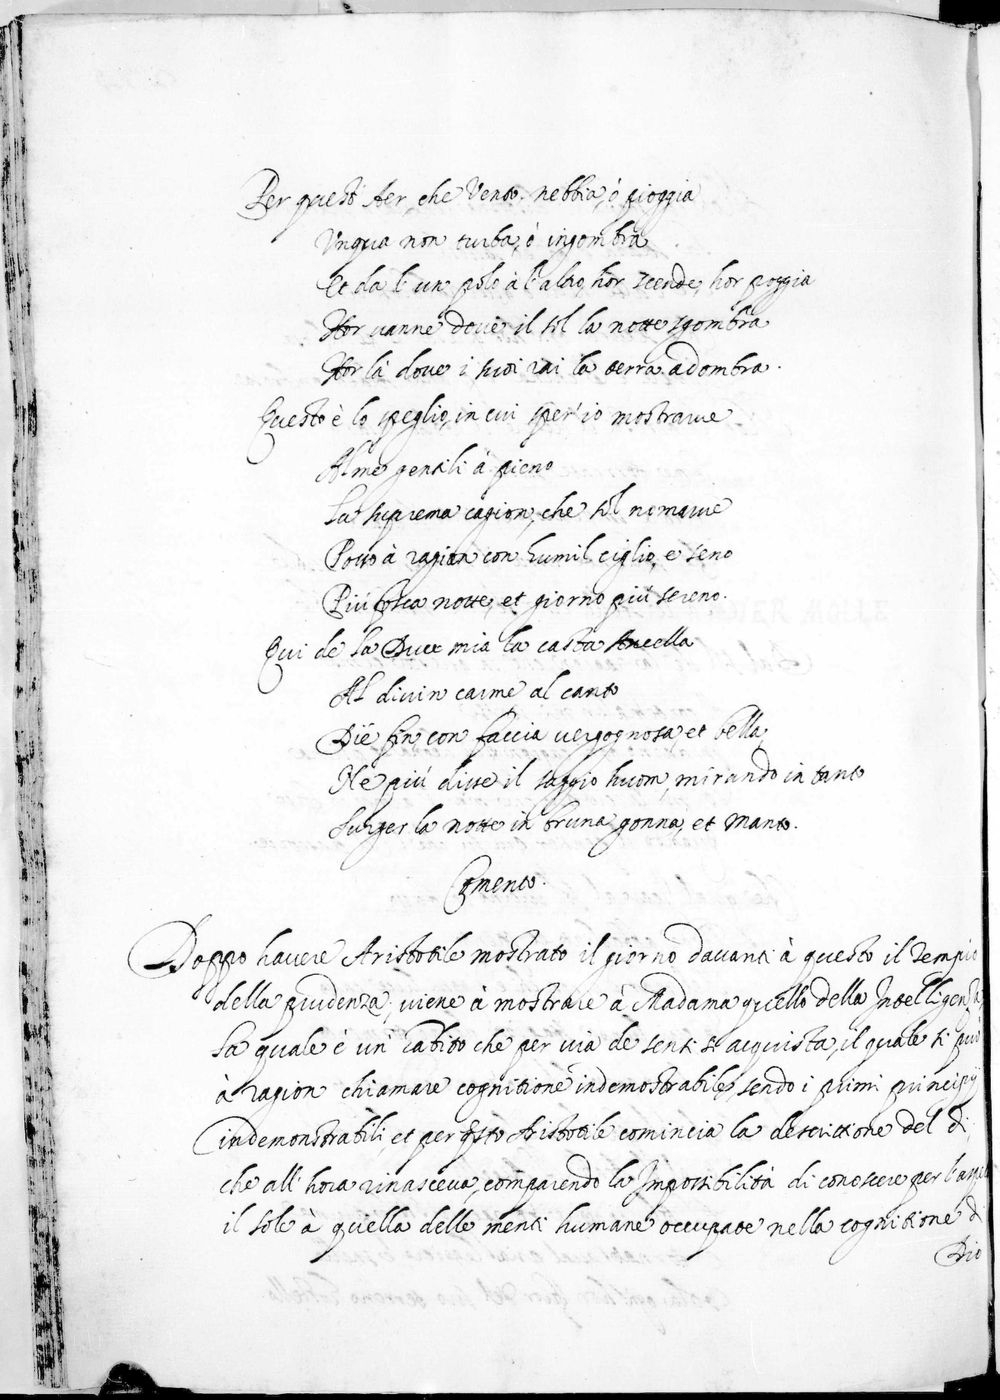 Per questo Aer, che Vento, nebbia, ò pioggia
Vnqua non turba, ò ingombra
Et da l'un polo à l'altro, hor scende, hor poggia
Hor vanne dove il sol la notte sgombra
Hor là dove i suoi rai la terra adombra.
Questo è lo speglio, in cui sper' io mostrarve
Alme gentili à pieno
La suprema cagion, che sol nomarve
Posso à ragion con humil ciglio, e seno
Più fosca notte, et giorno più sereno.
Qui de la Duce mia la casta Ancella
Al divin carme al canto
Diè fin con faccia vergognosa et bella,
Nè più disse il saggio huom, mirando in tanto
Surger la notte in bruna gonna, et Manto.
Comento.
Doppo havere Aristotile mostrato il giorno davanti à questo il Tempio
della prudenza, viene à mostrare à Madama quello della Intelligenza
La quale è un' habito che per via de sensi si acquista, il quale si può
à ragion chiamare cognitione indemostrabile, sendo i primi principij
indemonstrabili, et per qsto Aristotile comincia la descrittione del di,
che all' hora rinasceva, comparendo la Impossibilità di conoscere per
il sole à quella delle menti humane occupate nella cognitione d
Dio